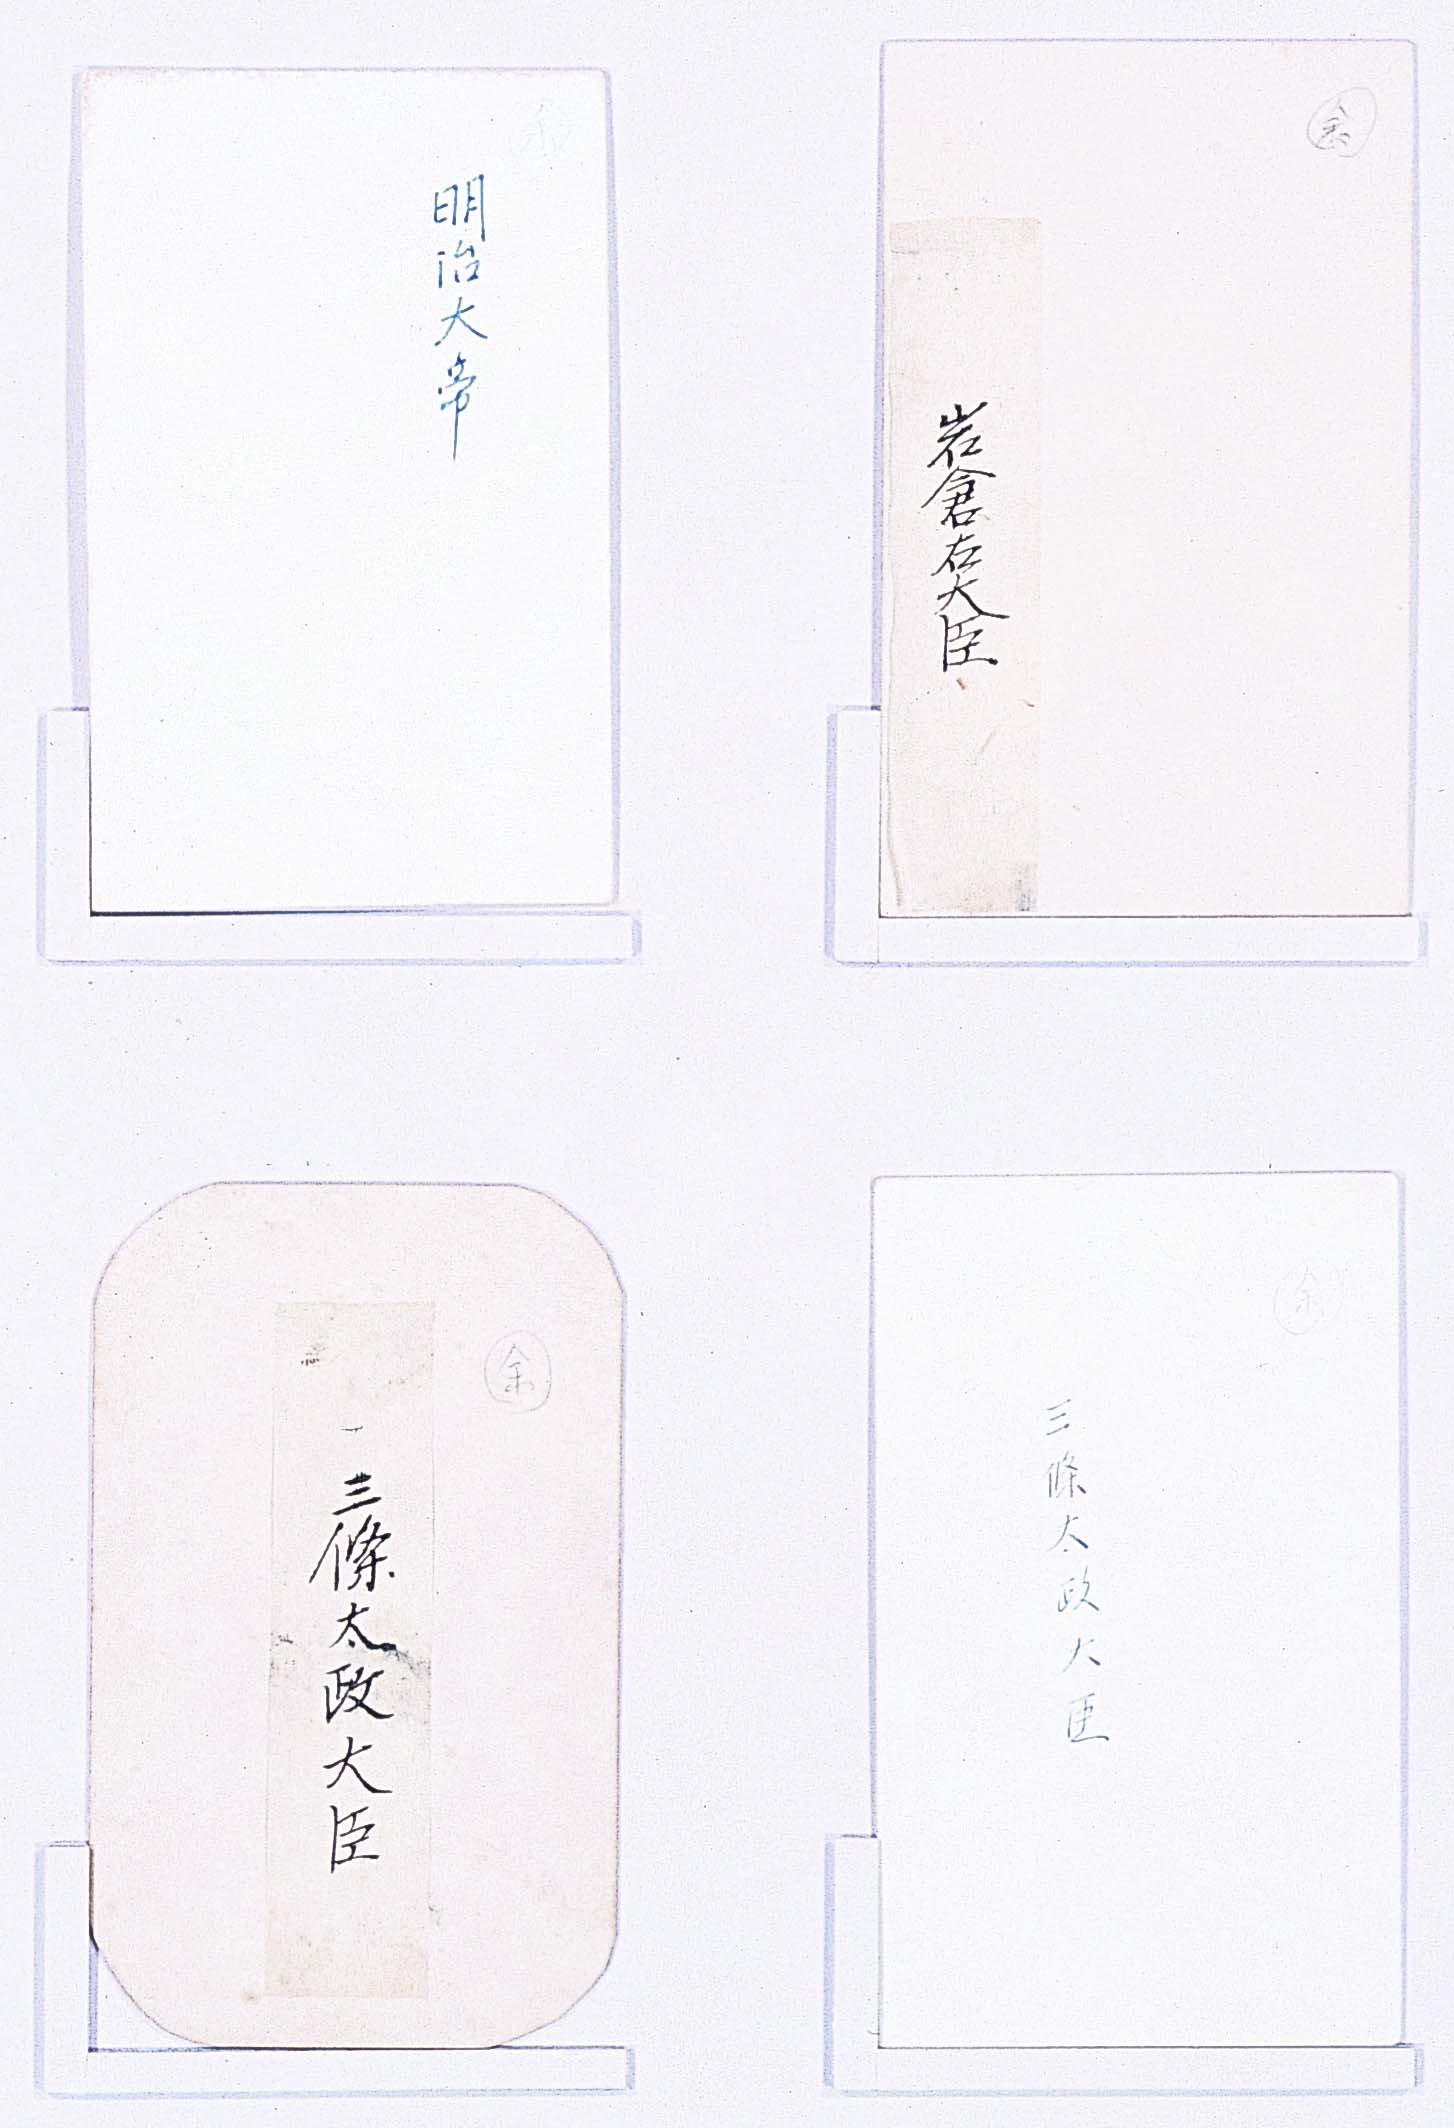 余
明治大帝
余
岩倉右大臣
余
三條太政大臣
余
三條太政大臣